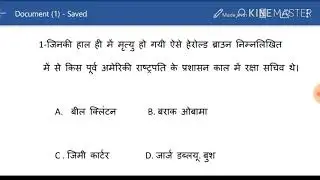 Document (1) - Saved
Made with KINEMASTER
1-जिनकी हाल ही में मृत्यु हो गयी ऐसे हेरोल्ड ब्राउन निम्नलिखित
में से किस पूर्व अमेरिकी राष्ट्रपति के प्रशासन काल में रक्षा सचिव थे।
A. बील क्लिंटन B. बराक ओबामा
C . जिमी कार्टर D. जार्ज डब्ल्यू. बुश